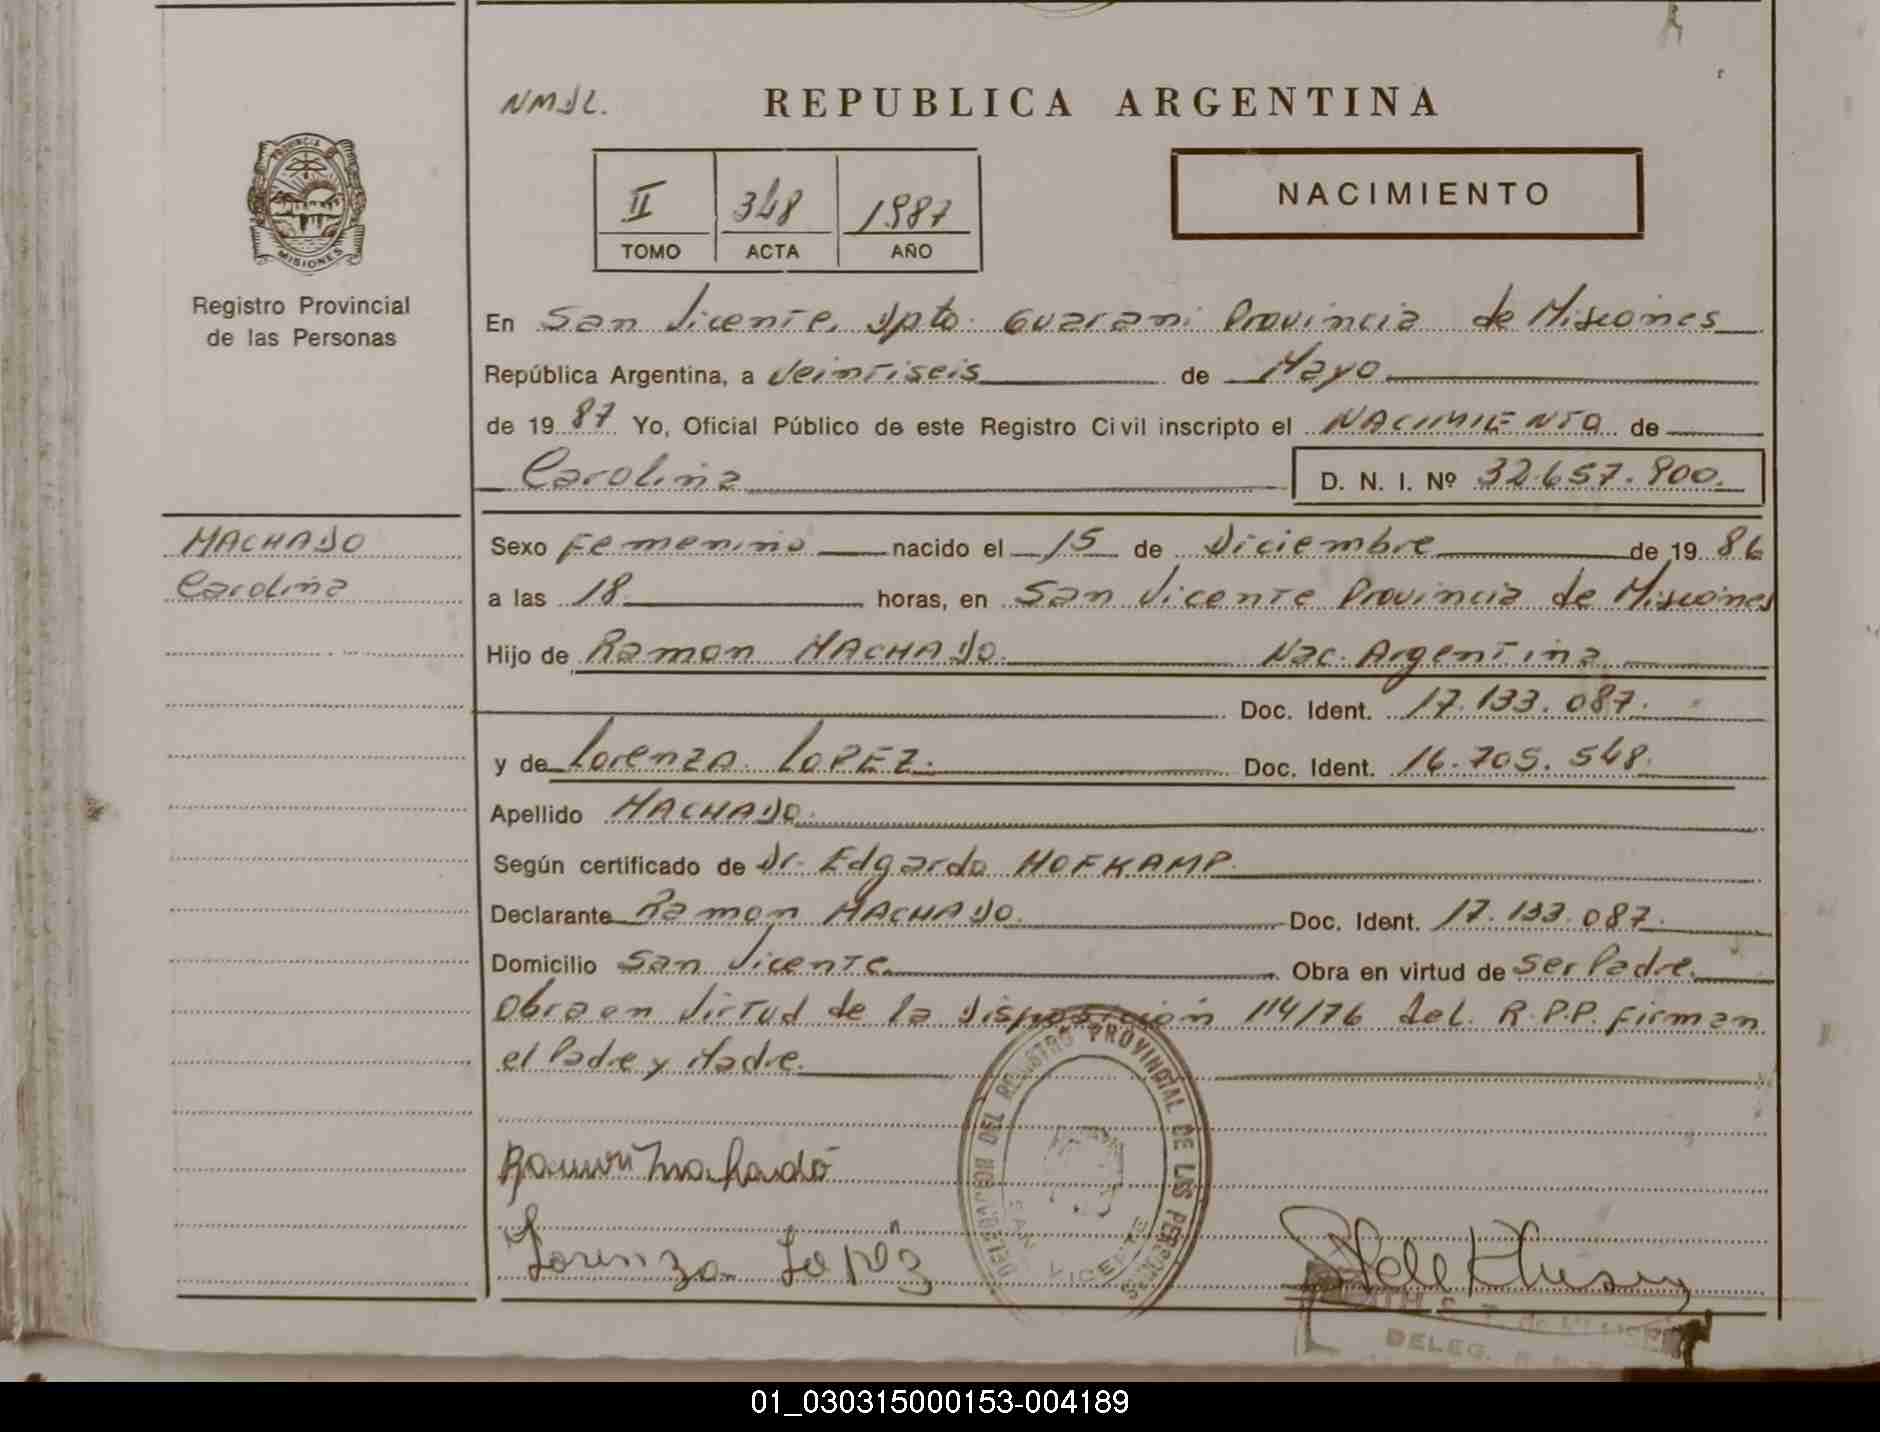 NMDL.
REPUBLICA ARGENTINA
PROVINCIA DE
MISIONES
Registro Provincial
de las Personas
II 348 1987
TOMO ACTA AÑO
NACIMIENTO
En San Vicente, Dpto. Guarani Provincia de Misiones
República Argentina, a veintiseis de Mayo
de 1987 Yo, Oficial Público de este Registro Civil inscripto el NACIMIENTO de
Carolina D. N. I. Nº 32.657.900.
MACHADO
Carolina
Sexo Femenino nacido el 15 de Diciembre de 1986
a las 18 horas, en San Vicente Provincia de Misiones
Hijo de Ramon MACHADO. Nac. Argentina
Doc. Ident. 17.133.087.
y de Lorenza LOPEZ. Doc. Ident. 16.705.548.
Apellido MACHADO.
Según certificado de Dr. Edgardo HOFKAMP.
Declarante Ramon MACHADO. Doc. Ident. 17.133.087.
Domicilio San Vicente. Obra en virtud de ser Padre.
Obra en Virtud de la Disposición 114/76 del. R.P.P. firman
el Padre y Madre.
DELEGACION DEL REGISTRO PROVINCIAL DE LAS PERSONAS
SAN VICENTE
Ramon Machado
Lorenza Lopez
DELEG.
01_030315000153-004189